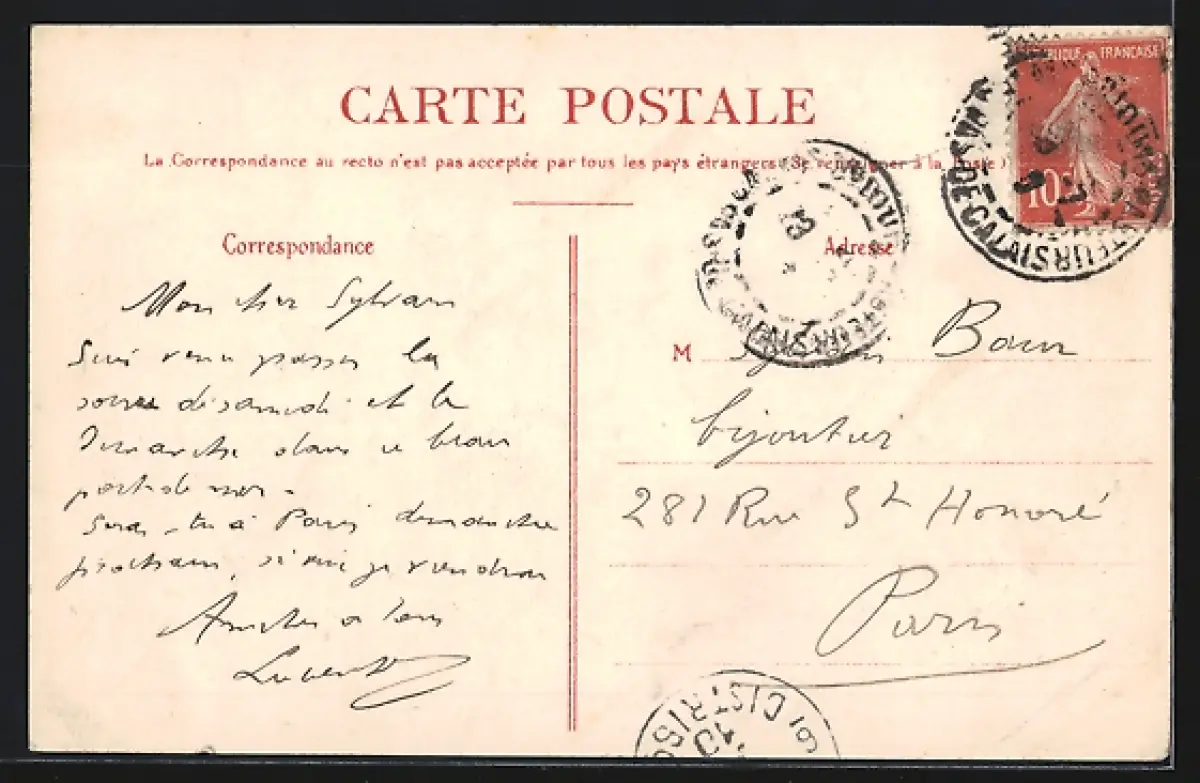 CARTE POSTALE
La Correspondance au recto n'est pas acceptée par tous les pays étrangers (Se renseigner à la Poste)
RÉPUBLIQUE FRANÇAISE
10
Correspondance
Mon cher Sylvain
Suis venu passer la
soirée de samedi et le
Dimanche dans ce beau
port de mer.
Seras-tu à Paris dimanche
prochain, si oui je viendrai
Amitiés à tous
Adresse
M Sylvain Baur
bijoutier
281 Rue St Honoré
Paris
PAS DE CALAIS
DISTRIB